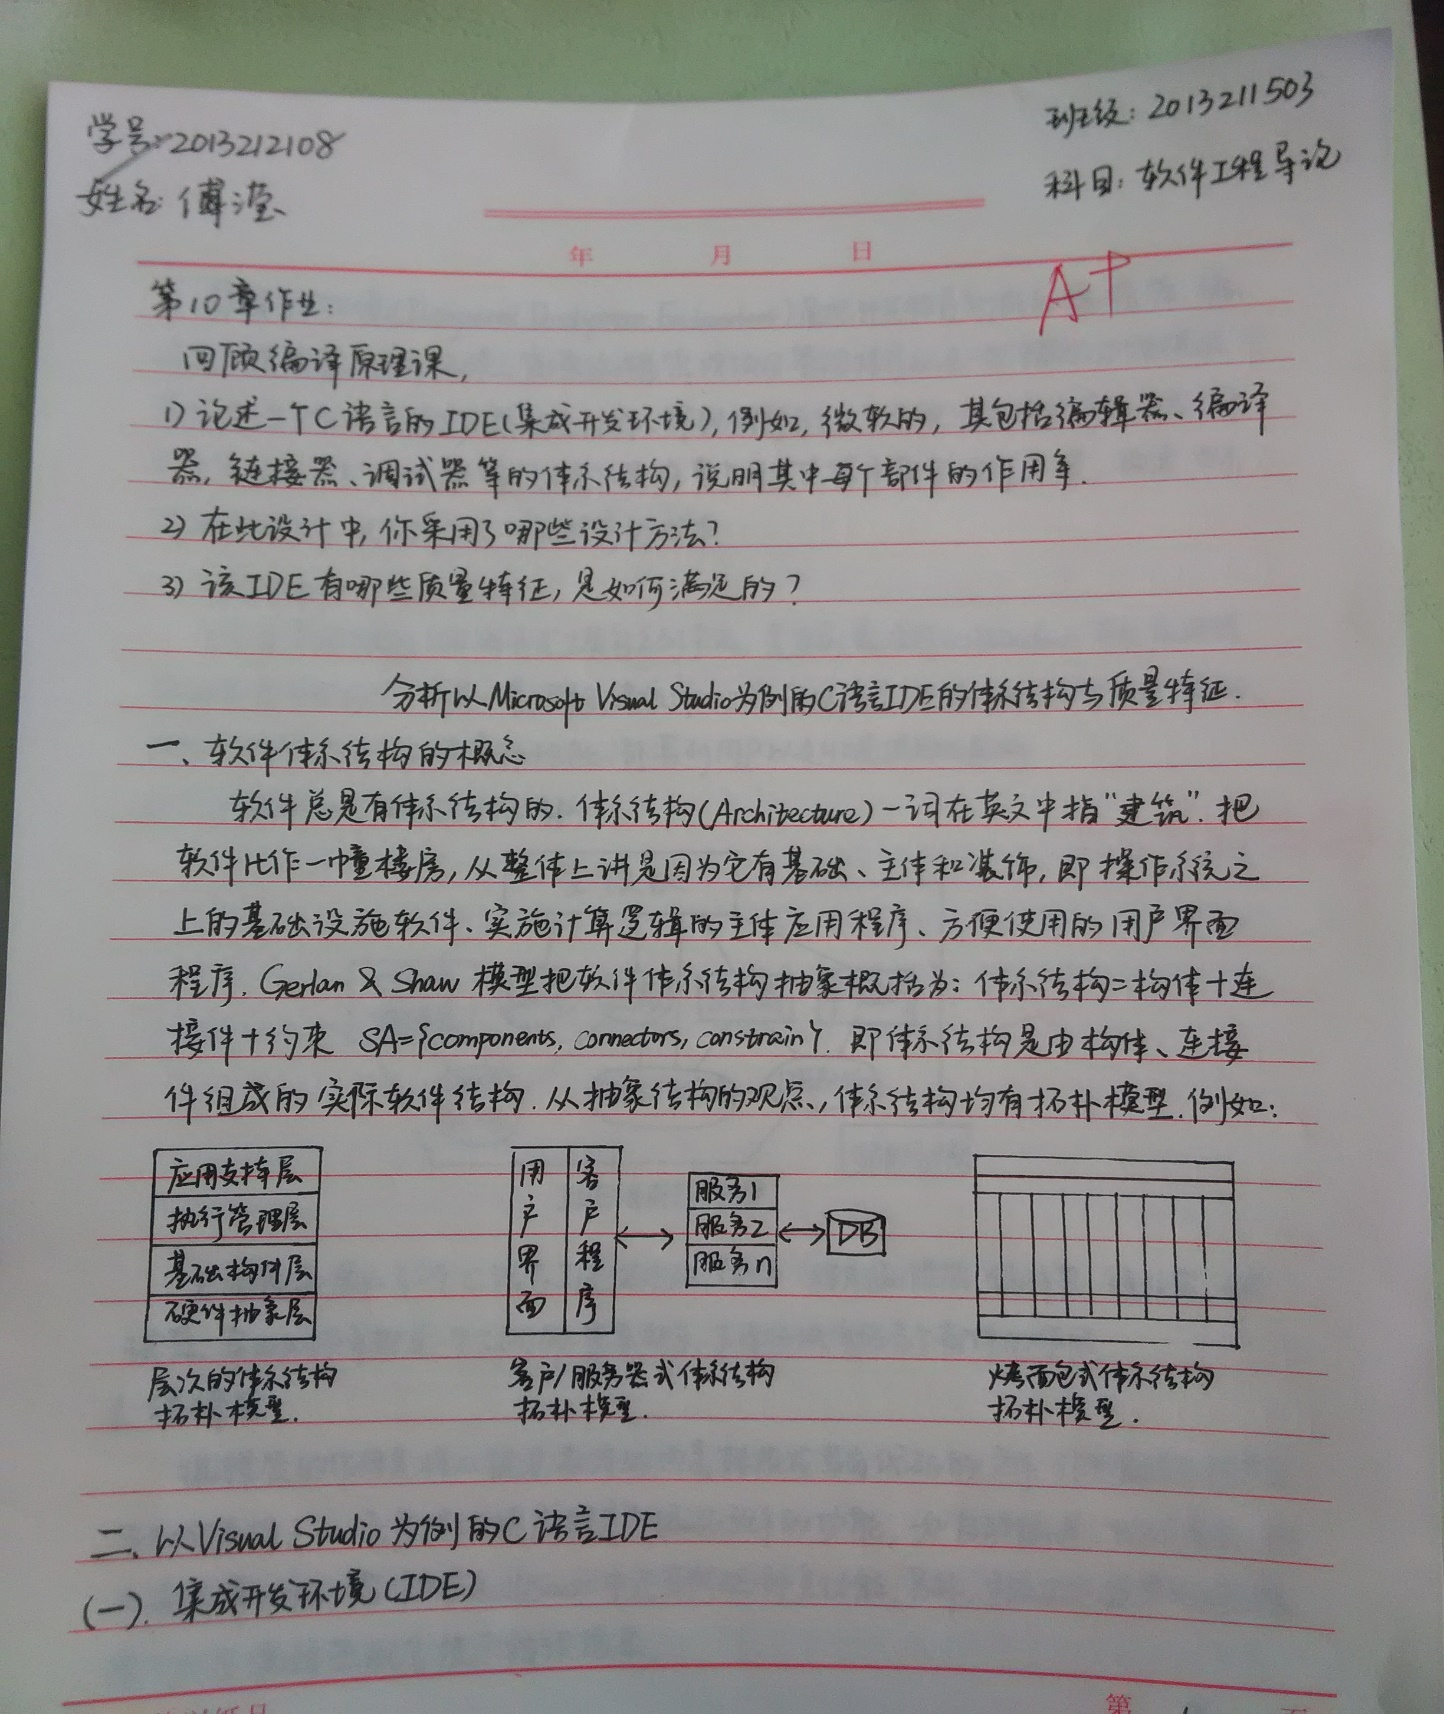 学号:2013212108
班级:2013211503
姓名:傅滢
科目:软件工程导论
年 月 日
A+
第10章作业:
回顾编译原理课,
1)论述一个C语言的IDE(集成开发环境),例如,微软的,其包括编辑器、编译
器,链接器、调试器等的体系结构,说明其中每个部件的作用等.
2)在此设计中,你采用了哪些设计方法?
3)该IDE有哪些质量特征,是如何满足的?
分析以Microsoft Visual Studio为例的C语言IDE的体系结构与质量特征.
一、软件体系结构的概念
软件总是有体系结构的.体系结构(Architecture)一词在英文中指“建筑”.把
软件比作一幢楼房,从整体上讲是因为它有基础、主体和装饰,即操作系统之
上的基础设施软件、实施计算逻辑的主体应用程序、方便使用的用户界面
程序.Gerlan & Shaw 模型把软件体系结构抽象概括为:体系结构=构体+连
接件+约束 SA={components, connectors, constrain}.即体系结构是由构体、连接
件组成的实际软件结构.从抽象结构的观点,体系结构均有拓扑模型.例如:
应用支持层
执行管理层
基础构件层
硬件抽象层
层次的体系结构
拓扑模型.
用户界面
客户程序
服务1
服务2
服务n
DB
客户/服务器式体系结构
拓扑模型.
烤面包式体系结构
拓扑模型.
二、以Visual Studio为例的C语言IDE
(一). 集成开发环境(IDE)
第 页